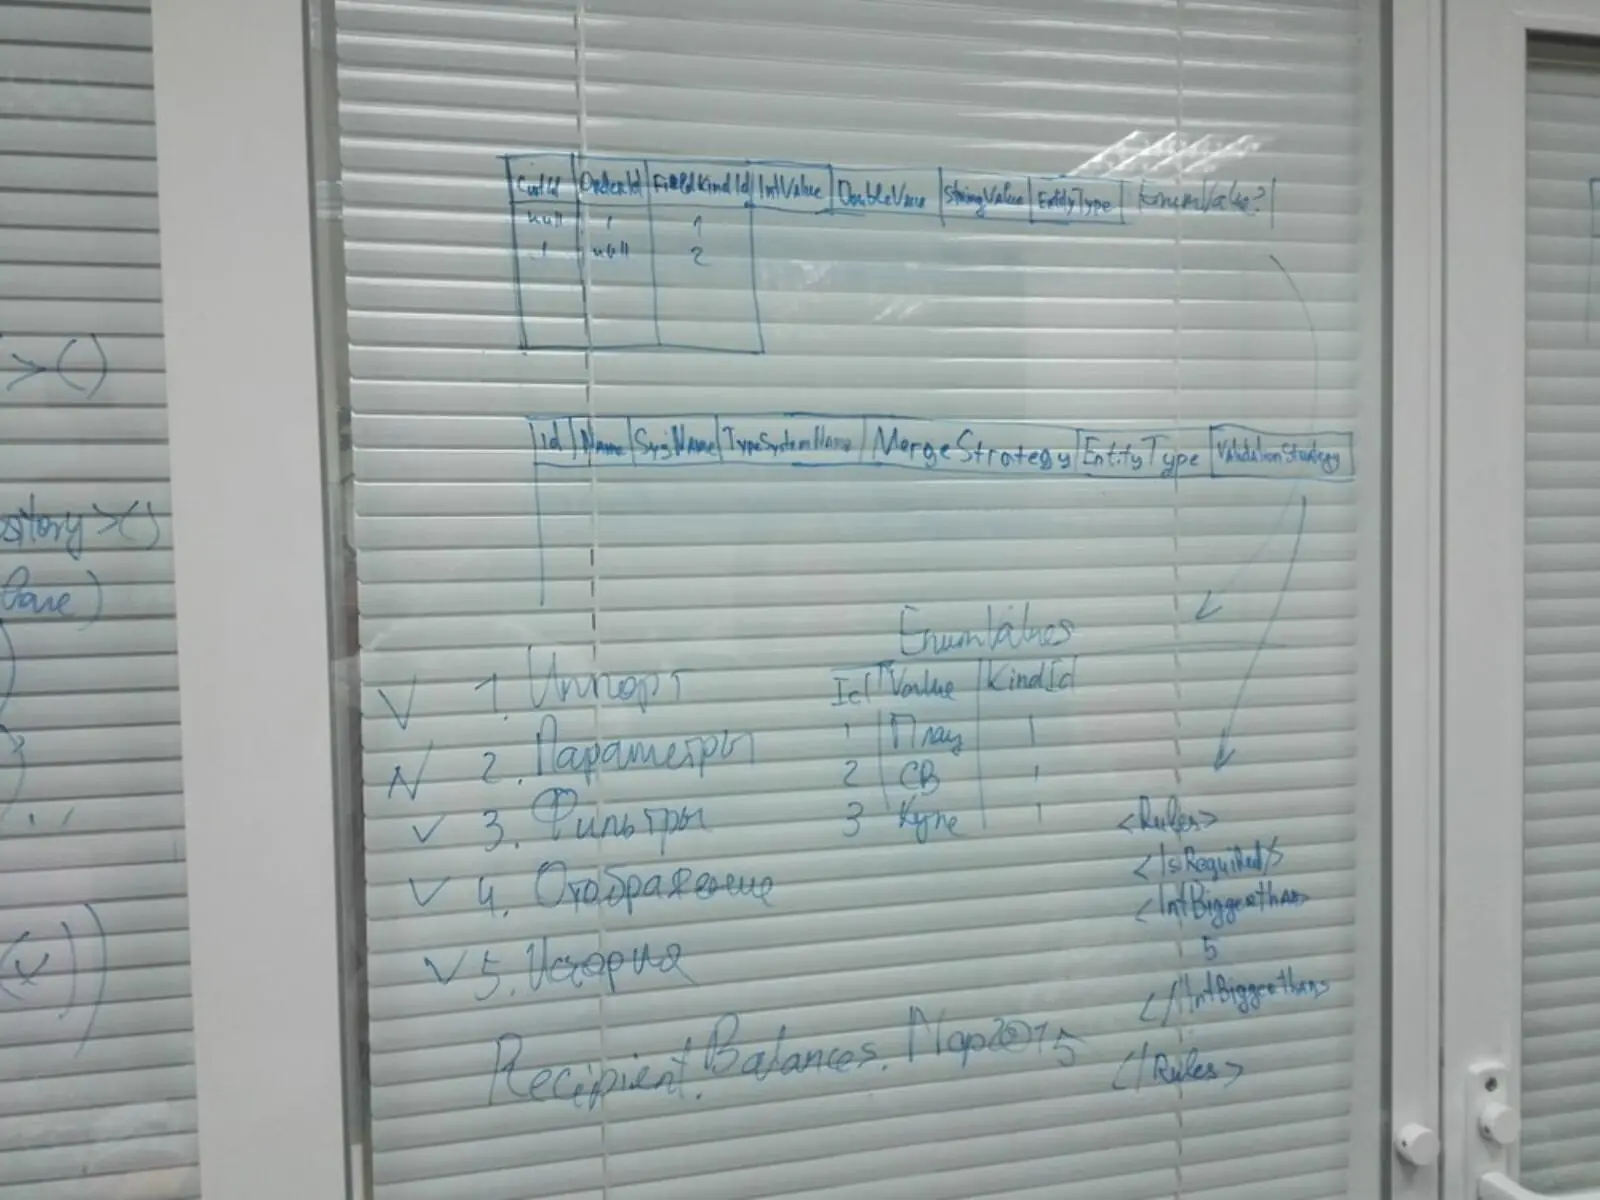 CustId OrderId FieldKindId IntValue DoubleValue StringValue EntityType EnumValue?
null 1 1
1 null 2
Id Name SysName TypeSystemName MergeStrategy EntityType ValidationStrategy
EnumValues
Id Value KindId
1 Плац 1
2 СВ 1
3 Купе 1
1. Импорт
2. Параметры
3. Фильтры
4. Отображение
5. История
Recipient.Balances.Мар2015
<Rules>
<IsRequired/>
<IntBiggerthan>
5
</IntBiggerthan>
</Rules>
>()
sitory>()
(x))